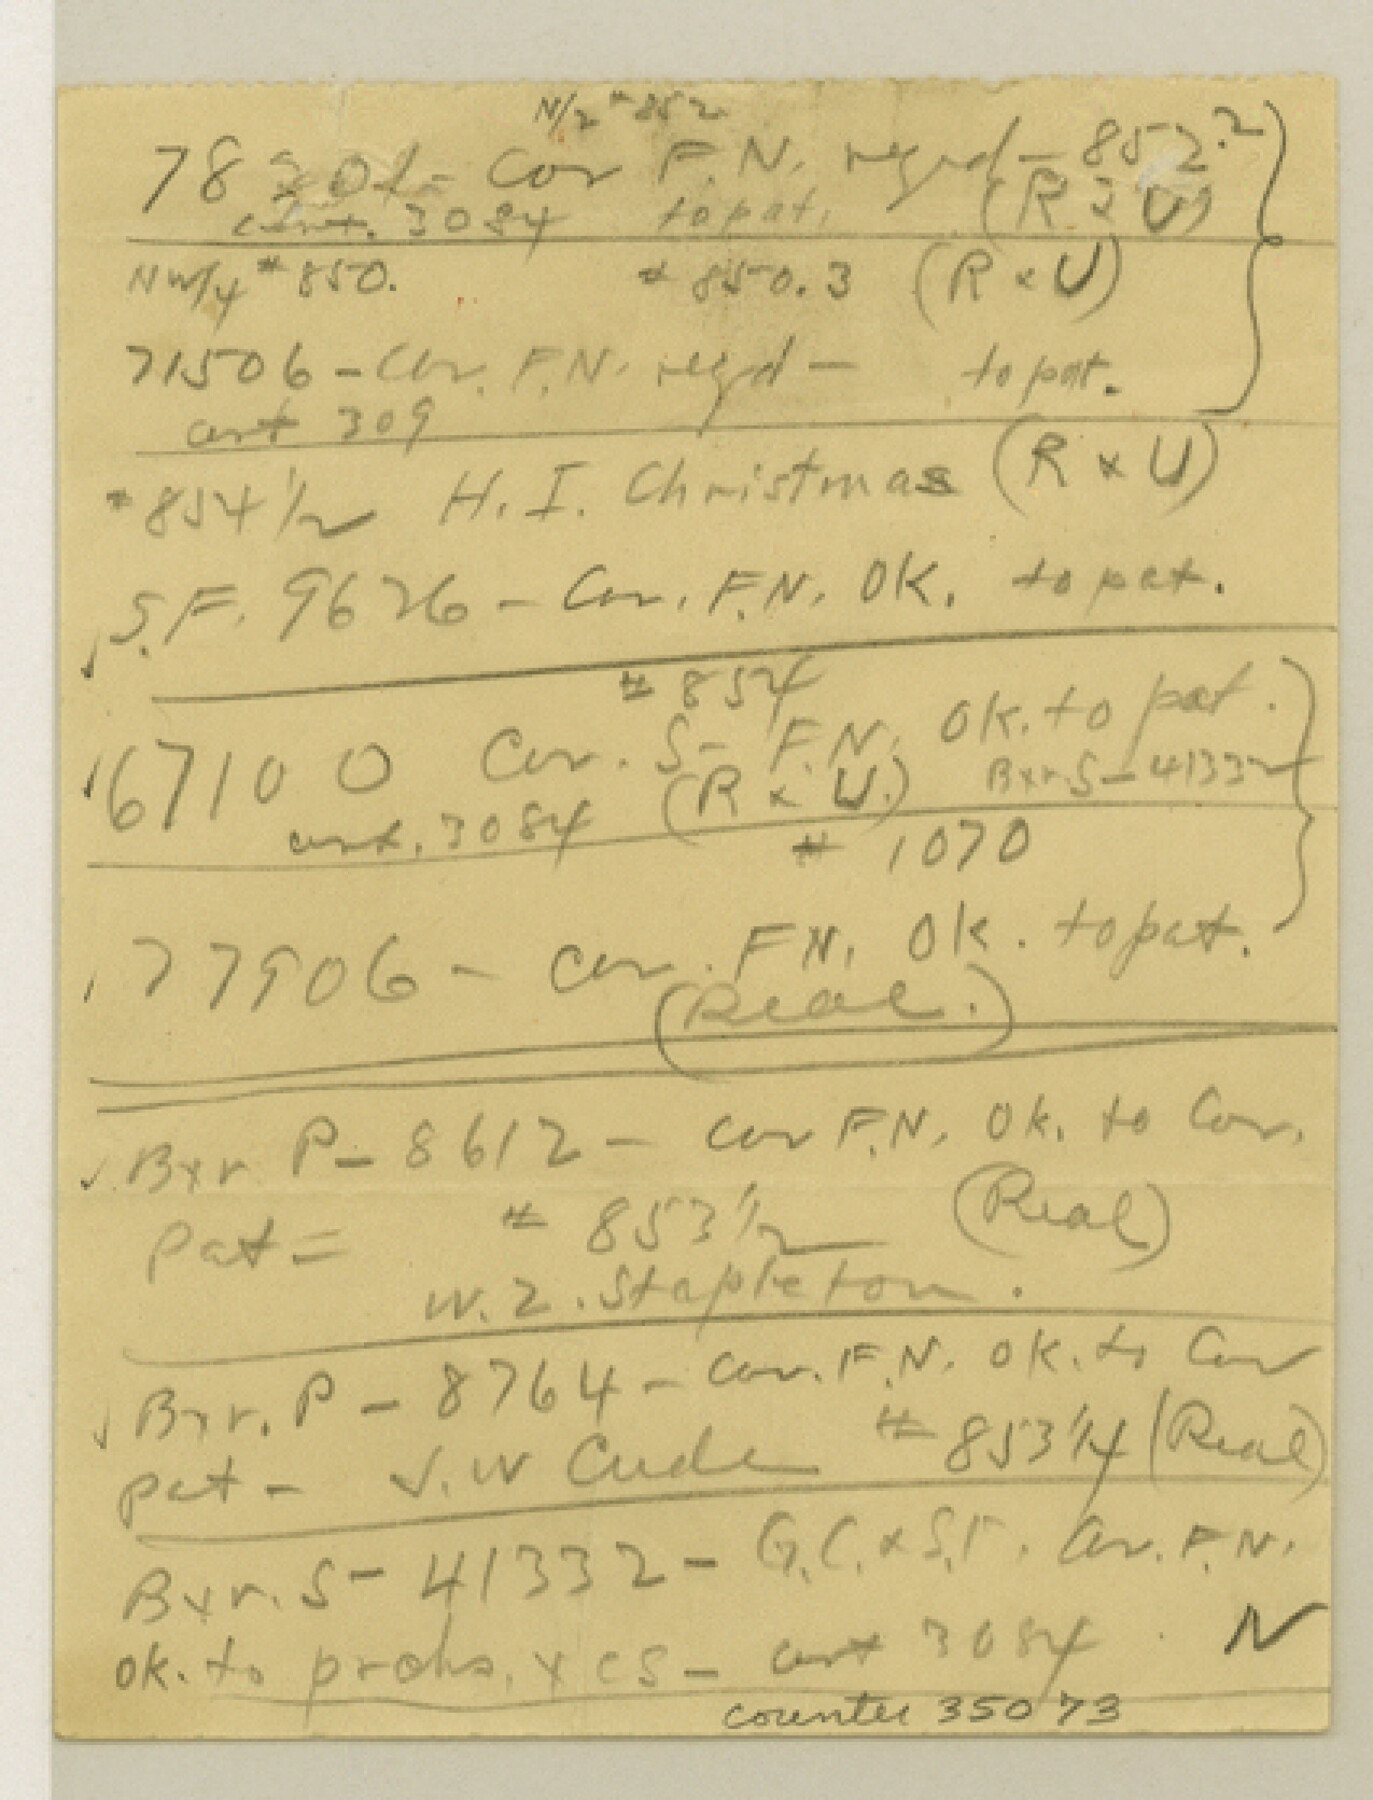 N/2 # 852
Cor F.N. reqd - 852?
cert. 3084 to pat. (R x U)
NW/4 # 850. # 850.3 (R x U)
71506 - Cor. F.N. reqd - to pat.
cert 309
# 854 1/2 H. I. Christmas (R x U)
S.F. 9626 - Cor. F.N. OK. to pat.
# 854
67100 Cor. S- F.N. OK. to pat.
cert. 3084 (R x U.) Bxr S-41332
# 1070
77906 - Cor. F.N. OK. to pat.
(Real.)
Bxr P-8612 - Cor F.N. OK. to Cor.
Pat = # 853 1/2 (Real)
W. Z. Stapleton.
Bxr. P-8764 - Cor. F.N. OK. to Cor
pat - J. W Cude # 853 1/4 (Real)
Bxr. S-41332 - G.C. x S.F. Cor. F.N.
OK. to probs. x CS - cert 3084 N
counter 35073